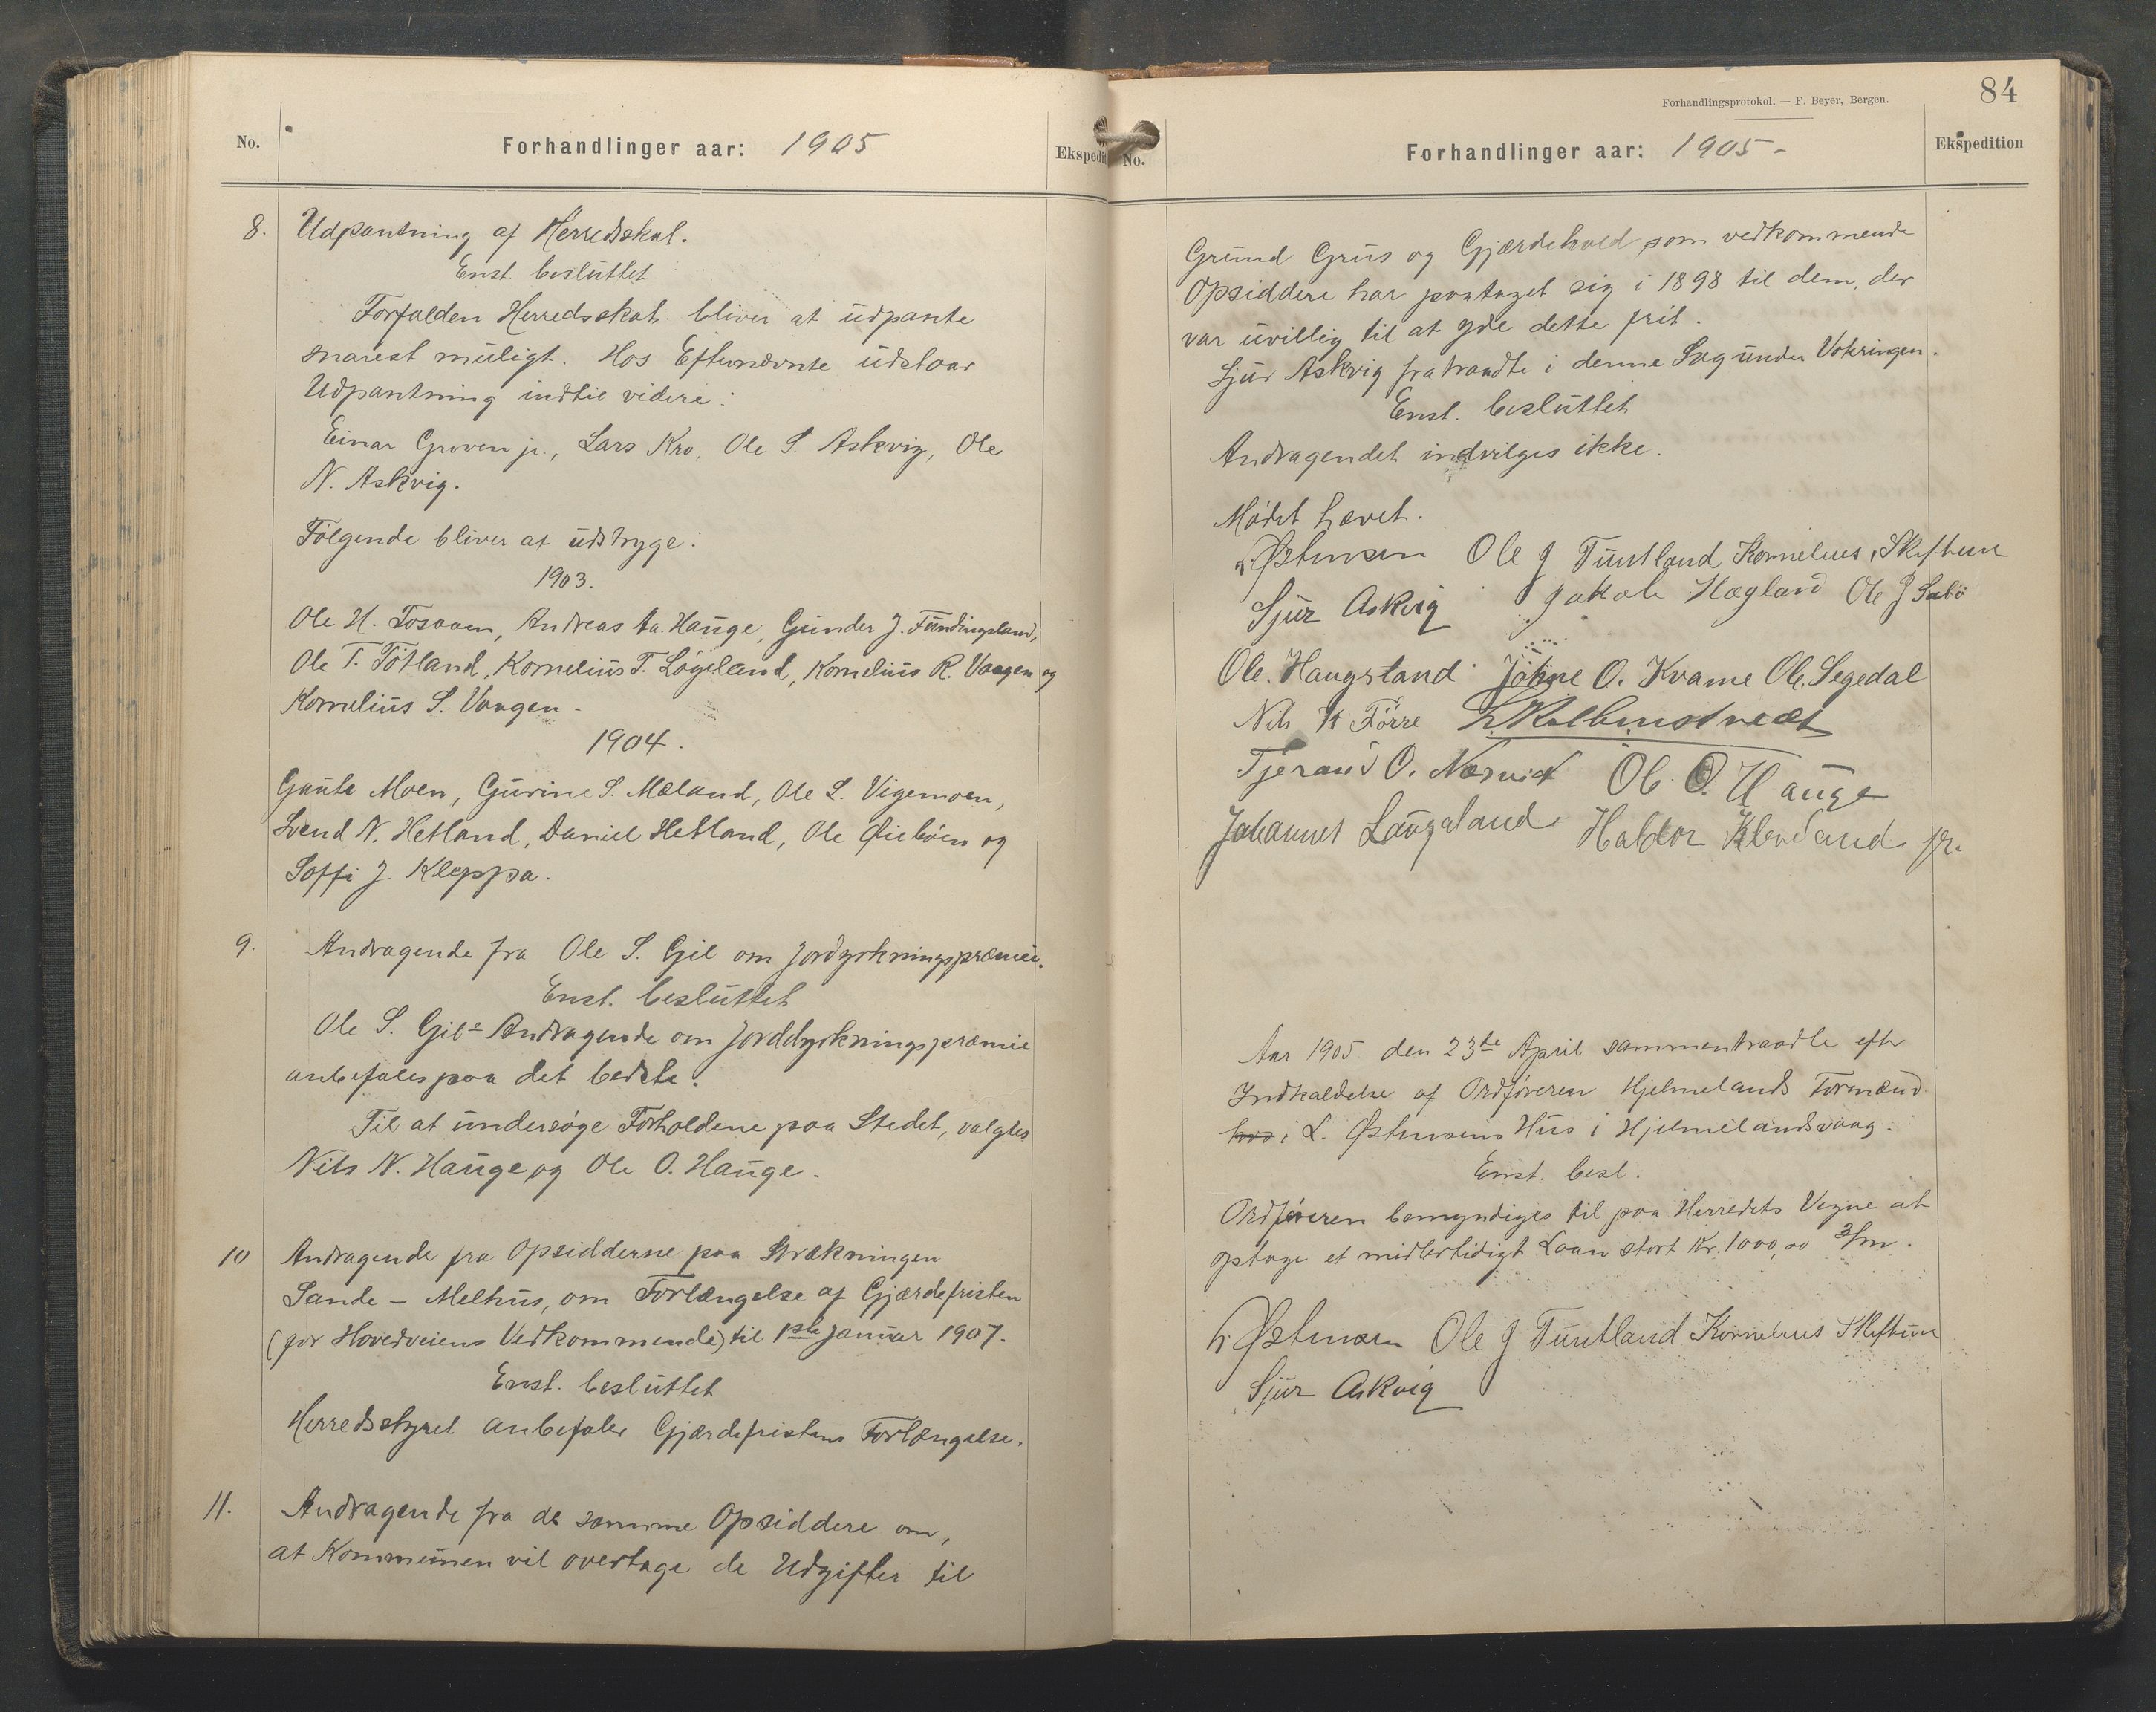 No.
Forhandlinger aar: 1905
Ekspedi
8. Udpantning af Herredsskat.
Enst. besluttet
Forfalden Herredsskat bliver at udpante
snarest muligt. Hos Efternævnte udstaar
Udpantning indtil videre:
Einar Groven jr., Lars Kro, Ole S. Askvig, Ole
N. Askvig.
Følgende bliver at udstryge:
1903.
Ole H. Tosaaen, Andreas Aa. Hauge, Gunder J. Fundingsland,
Ole T. Tøtland, Kornelius T. Løgeland, Kornelius R. Vaagen og
Kornelius S. Vaagen -
1904.
Gauta Moen, Gurine S. Mæland, Ole L. Vigemoen,
Svend N. Hetland, Daniel Hetland, Ole Øiebøen og
Soffi J. Kleppa.
9. Andragende fra Ole S. Gil om Jordyrkningspræmie.
Enst. besluttet
Ole S. Gils Andragende om Jorddyrkningspræmie
anbefales paa det bedste.
Til at undersøge Forholdene paa Stedet, valgtes
Nils N. Hauge og Ole O. Hauge.
10 Andragende fra Opsidderne paa Strækningen
Sande - Melhus, om Forlængelse af Gjærdefristen
(for Hovedveiens Vedkommende) til 1ste Januar 1907.
Enst. besluttet
Herredsstyret anbefaler Gjærdefristens Forlængelse.
11. Andragende fra de samme Opsiddere om,
at Kommunen vil overtage de Udgifter til
84
Forhandlingsprotokol. — F. Beyer, Bergen.
No.
Forhandlinger aar: 1905 -
Ekspedition
Grund Grus og Gjærdehold som vedkommende
Opsiddere har paataget sig i 1898 til dem, der
var uvillig til at yde dette frit.
Sjur Askvig fratraadte i denne Sag under Voteringen.
Enst. besluttet
Andragendet indvilges ikke.
Mødet hævet.
L. Østensen Ole J Tuntland Kornelius Skiftun
Sjur Askvig Jakob Hægland Ole J Sabø
Ole Haugstand Johne O. Kvame Ole Segedal
Nils K Førre
Tjerand O. Nesvik Ole O. Hauge
Johannes Laugaland Haldor Kleveland jr.
Aar 1905 den 23de April sammentraadte efter
Indkaldelse af Ordføreren Hjelmelands Formænd
hos i L. Østensens Hus i Hjelmelandsvaag.
Enst. besl.
Ordføreren bemyndiges til paa Herredets Vegne at
optage et midlertidigt Laan stort Kr. 1000,00 3/m.
L. Østensen Ole J Tuntland Kornelius Skiftun
Sjur Askvig